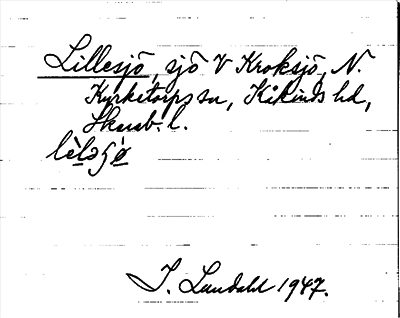 Lillesjö, sjö V Kroksjö, N.
Kyrketorps sn, Kåkinds hd,
Skarab. l.
I. Lundahl 1947.